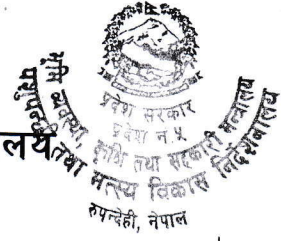 प्रदेश सरकार
प्रदेश नं ५
भूमि व्यवस्था, कृषि तथा सहकारी मन्त्रालय
पशुपन्छी तथा मत्स्य विकास निर्देशनालय
रुपन्देही, नेपाल
लय